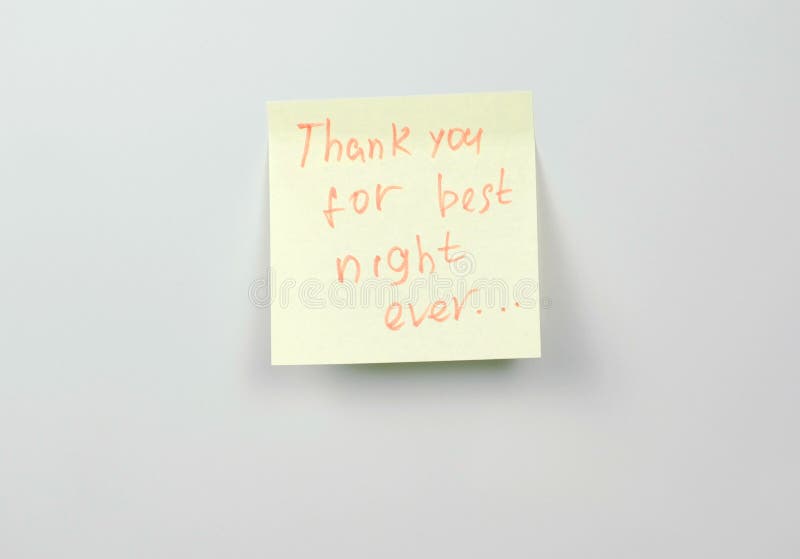 Thank you
for best
night
ever...
dreamstime